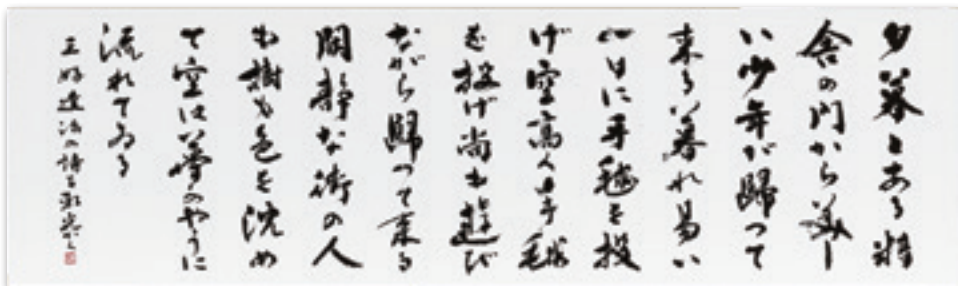 夕暮とある精
舎の門から美し
い少年が歸つて
来る暮れ易い
一日に手毬を投
げ空高く手毬
を投げ尚も遊び
ながら歸つて来る
閑静な街の人
も樹も色を沈め
て空は夢のやうに
流れてゐる
三好達治の詩